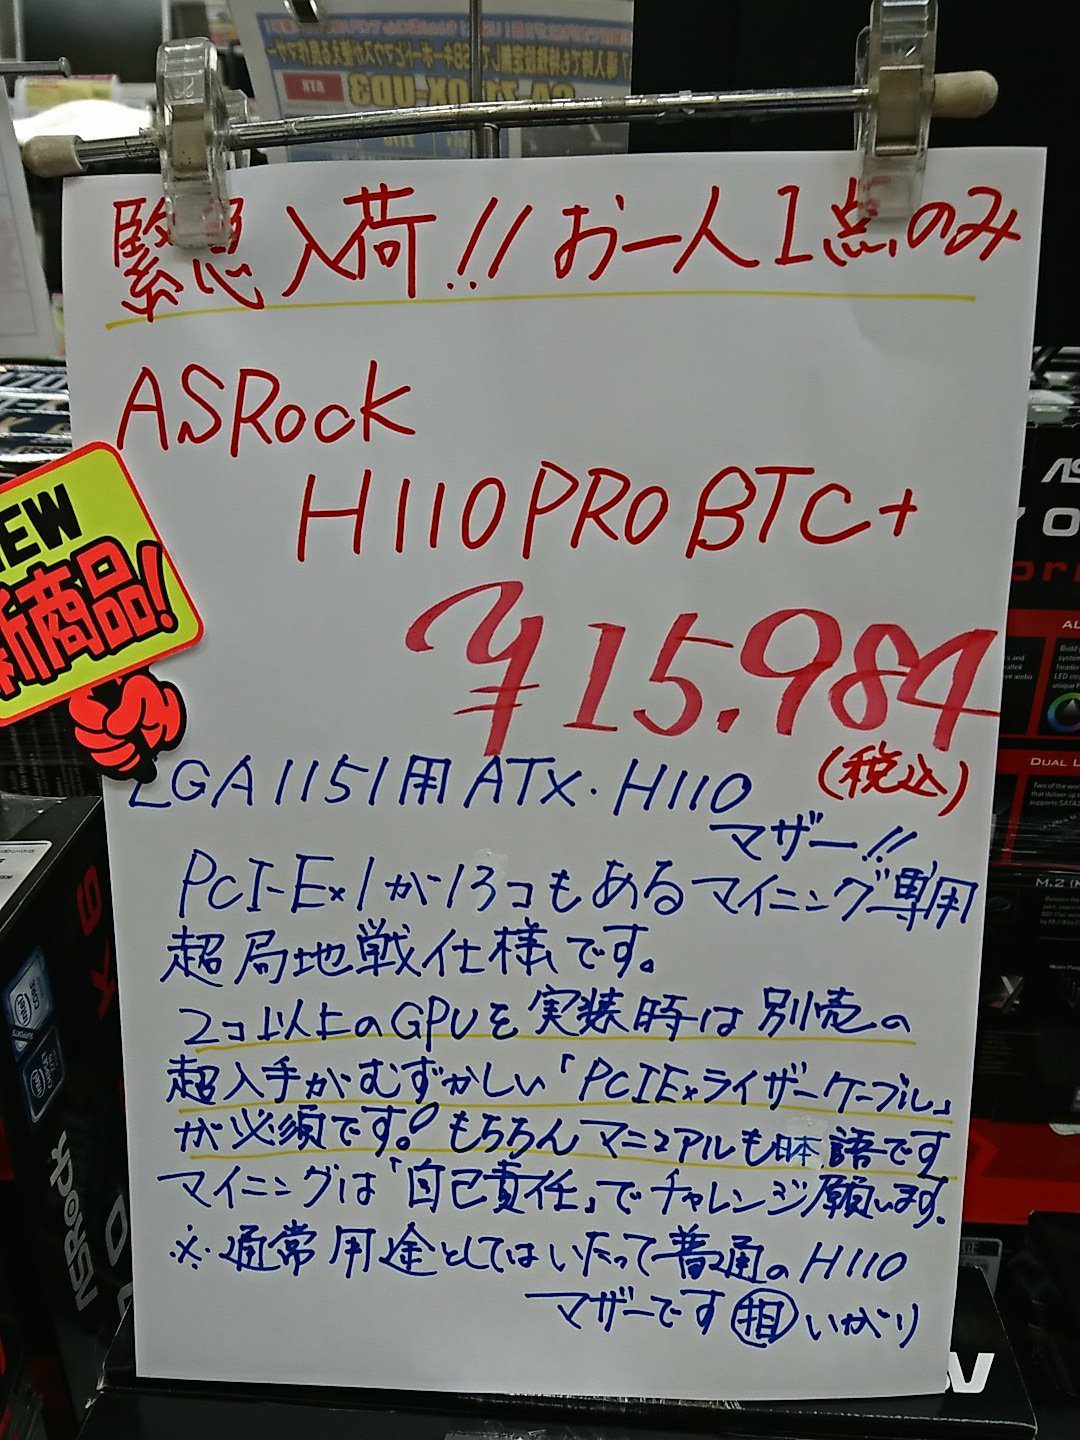 緊急入荷!! お一人1点のみ
ASRock
H110PRO BTC+
¥15.984
(税込)
NEW
新商品!
LGA1151用ATX・H110
マザー!!
PCI-E×1が13コもあるマイニング専用
超局地戦仕様です。
2コ以上のGPUを実装時は別売の
超入手がむずかしい「PCIE×ライザーケーブル」
が必須です。もちろんマニュアルも日本語です
マイニングは「自己責任」でチャレンジ願います。
※通常用途としてはいたって普通のH110
マザーです 担 いがり
ASRock
DUAL L
M.2 (K